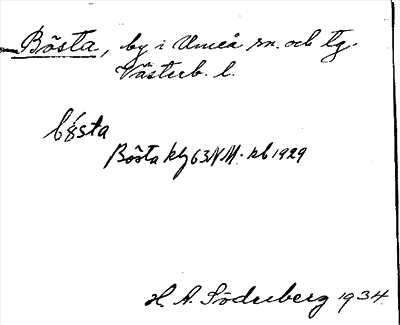 Bösta, by i Umeå sn. och tg.
Västerb. l.
bö́sta
Bösta kbl 63 NM. rb 1929
H. A. Söderberg 1934.